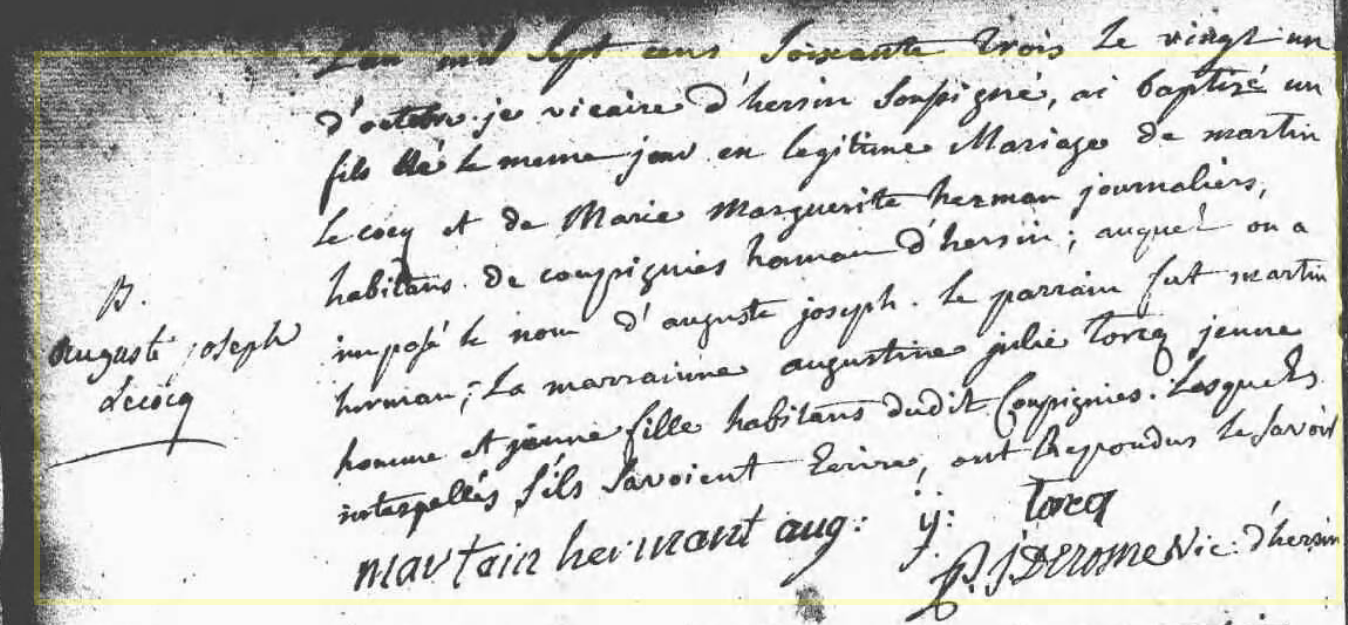 L'an mil sept cens soixante trois le vingt un
d'octobre je vicaire d'hersin soussigné, ai baptizé un
fils né le meme jour en legitime Mariage de martin
Lecocq et de Marie Marguerite herman journaliers,
habitans de coupignies hamau d'hersin; auquel on a
imposé le nom d'auguste joseph. le parrain fut martin
herman; La marrainne augustine julie Torcq jeune
homme et jeune fille habitans dudit Coupignies. Lesquels
interpellés s'ils savoient Ecrire, ont Repondus le savoir
B.
Auguste joseph
Lecocq
martain hermant aug: ij: torcq
p. j. Derome Vic: d'hersin